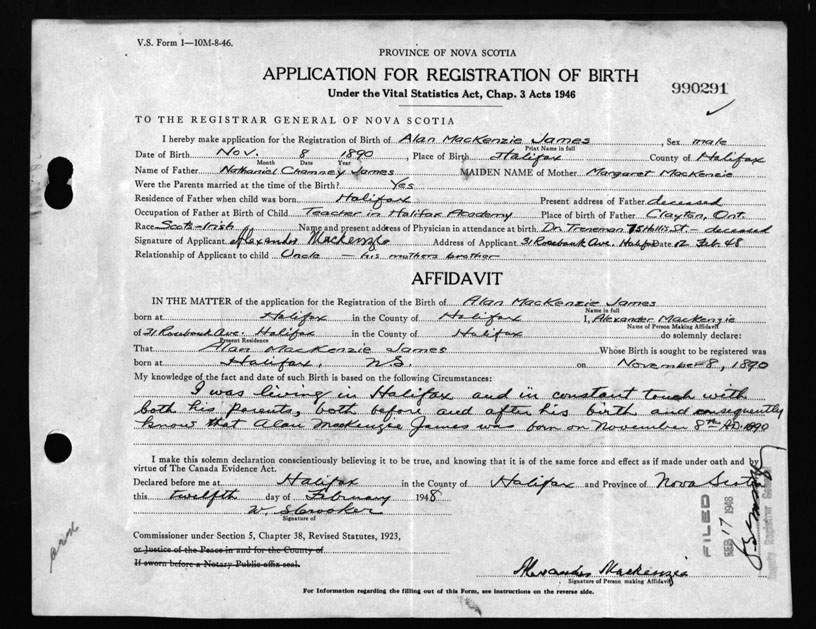 V.S. Form 1—10M-8-46.
PROVINCE OF NOVA SCOTIA
APPLICATION FOR REGISTRATION OF BIRTH
Under the Vital Statistics Act, Chap. 3 Acts 1946
990291
TO THE REGISTRAR GENERAL OF NOVA SCOTIA
I hereby make application for the Registration of Birth of Alan MacKenzie James, Sex male
Print Name in full
Date of Birth Nov. 8 1890, Place of Birth Halifax County of Halifax
Month Date Year
Name of Father Nathaniel Chamney James MAIDEN NAME of Mother Margaret MacKenzie
Were the Parents married at the time of the Birth? Yes
Residence of Father when child was born Halifax Present address of Father deceased
Occupation of Father at Birth of Child Teacher in Halifax Academy Place of birth of Father Clayton, Ont.
Race Scots-Irish Name and present address of Physician in attendance at birth Dr. Treneman 75 Hollis St. - deceased
Signature of Applicant Alexander MacKenzie Address of Applicant 31 Rosebank Ave. Halifax Date 12 Feb. 48
Relationship of Applicant to child Uncle - his mothers brother
AFFIDAVIT
IN THE MATTER of the application for the Registration of the Birth of Alan MacKenzie James
Name in full
born at Halifax in the County of Halifax I, Alexander MacKenzie
Name of Person Making Affidavit
of 31 Rosebank Ave. Halifax in the County of Halifax do solemnly declare:
Present Residence
That Alan MacKenzie James Whose Birth is sought to be registered was
born at Halifax, N.S. on November 8, 1890
My knowledge of the fact and date of such Birth is based on the following Circumstances:
I was living in Halifax and in constant touch with
both his parents, both before and after his birth and consequently
know that Alan MacKenzie James was born on November 8th A.D. 1890
I make this solemn declaration conscientiously believing it to be true, and knowing that it is of the same force and effect as if made under oath and by
virtue of The Canada Evidence Act.
Declared before me at Halifax in the County of Halifax and Province of Nova Scotia
this twelfth day of February 1948
W.
Signature of
Commissioner under Section 5, Chapter 38, Revised Statutes, 1923,
or Justice of the Peace in and for the County of
If sworn before a Notary Public affix seal.
FILED
FEB 17 1948
Alexander MacKenzie
Signature of Person making Affidavit
For Information regarding the filling out of this Form, see instructions on the reverse side.